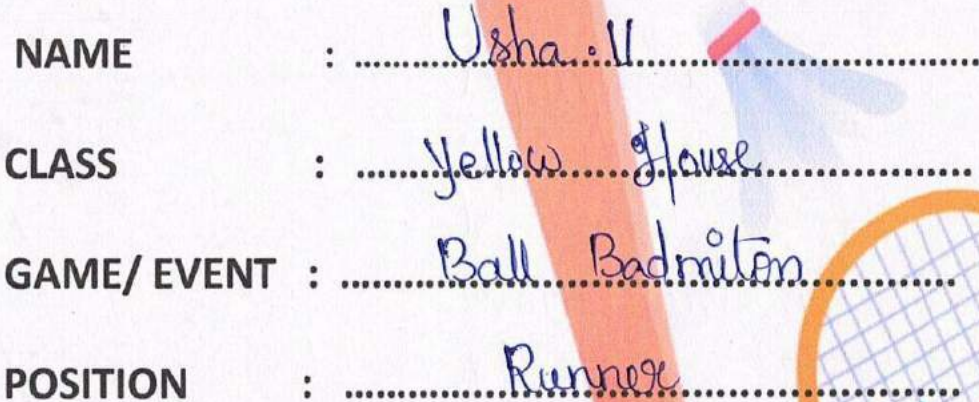 NAME : Usha.U
CLASS : Yellow House
GAME/ EVENT : Ball Badmiton
POSITION : Runner